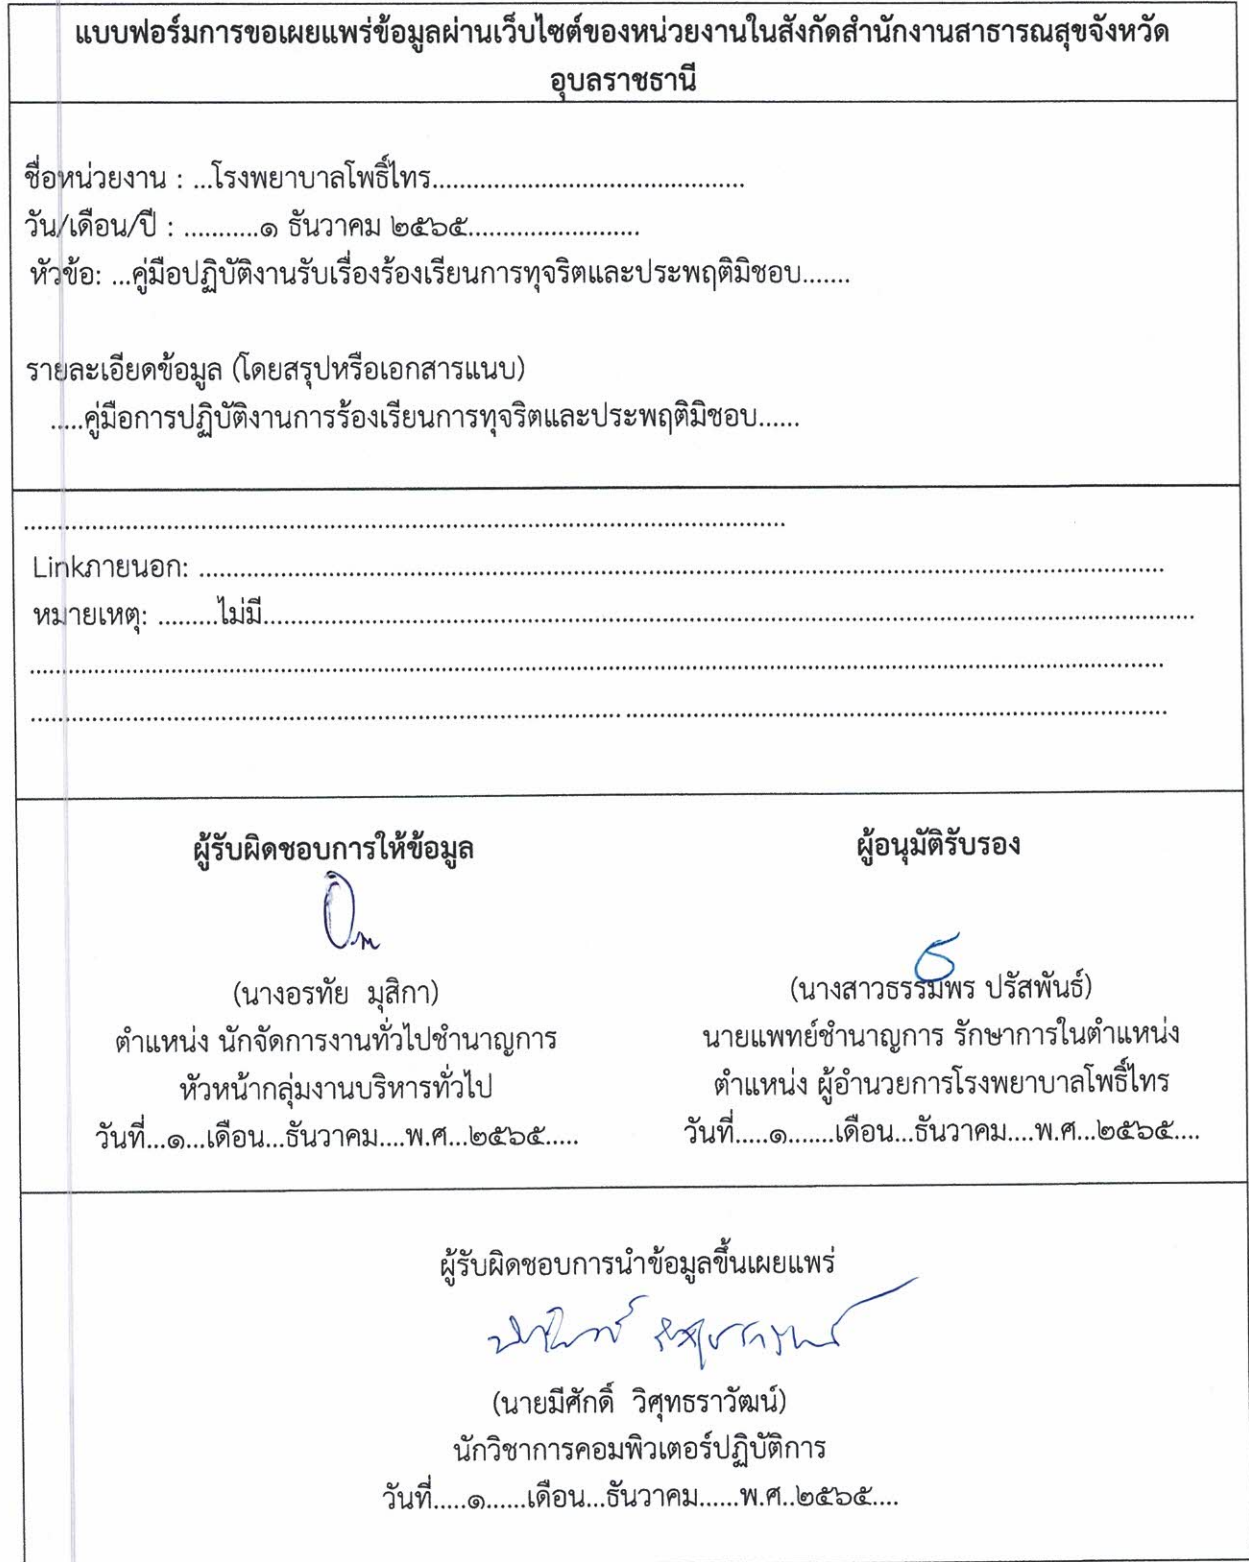 แบบฟอร์มการขอเผยแพร่ข้อมูลผ่านเว็บไซต์ของหน่วยงานในสังกัดสำนักงานสาธารณสุขจังหวัด
อุบลราชธานี
ชื่อหน่วยงาน : ...โรงพยาบาลโพธิ์ไทร.............................................
วัน/เดือน/ปี : ...........๑ ธันวาคม ๒๕๖๕.........................
หัวข้อ: ...คู่มือปฏิบัติงานรับเรื่องร้องเรียนการทุจริตและประพฤติมิชอบ.......
รายละเอียดข้อมูล (โดยสรุปหรือเอกสารแนบ)
.....คู่มือการปฏิบัติงานการร้องเรียนการทุจริตและประพฤติมิชอบ......
Linkภายนอก: ..........................................................................................
หมายเหตุ: .........ไม่มี..........................................................................................
ผู้รับผิดชอบการให้ข้อมูล
(นางอรทัย มุสิกา)
ตำแหน่ง นักจัดการงานทั่วไปชำนาญการ
หัวหน้ากลุ่มงานบริหารทั่วไป
วันที่...๑...เดือน...ธันวาคม....พ.ศ...๒๕๖๕.....
ผู้อนุมัติรับรอง
(นางสาวธรรมพร ปรัสพันธ์)
นายแพทย์ชำนาญการ รักษาการในตำแหน่ง
ตำแหน่ง ผู้อำนวยการโรงพยาบาลโพธิ์ไทร
วันที่.....๑.......เดือน...ธันวาคม....พ.ศ...๒๕๖๕....
ผู้รับผิดชอบการนำข้อมูลขึ้นเผยแพร่
(นายมีศักดิ์ วิศุทธราวัฒน์)
นักวิชาการคอมพิวเตอร์ปฏิบัติการ
วันที่.....๑......เดือน...ธันวาคม......พ.ศ..๒๕๖๕....